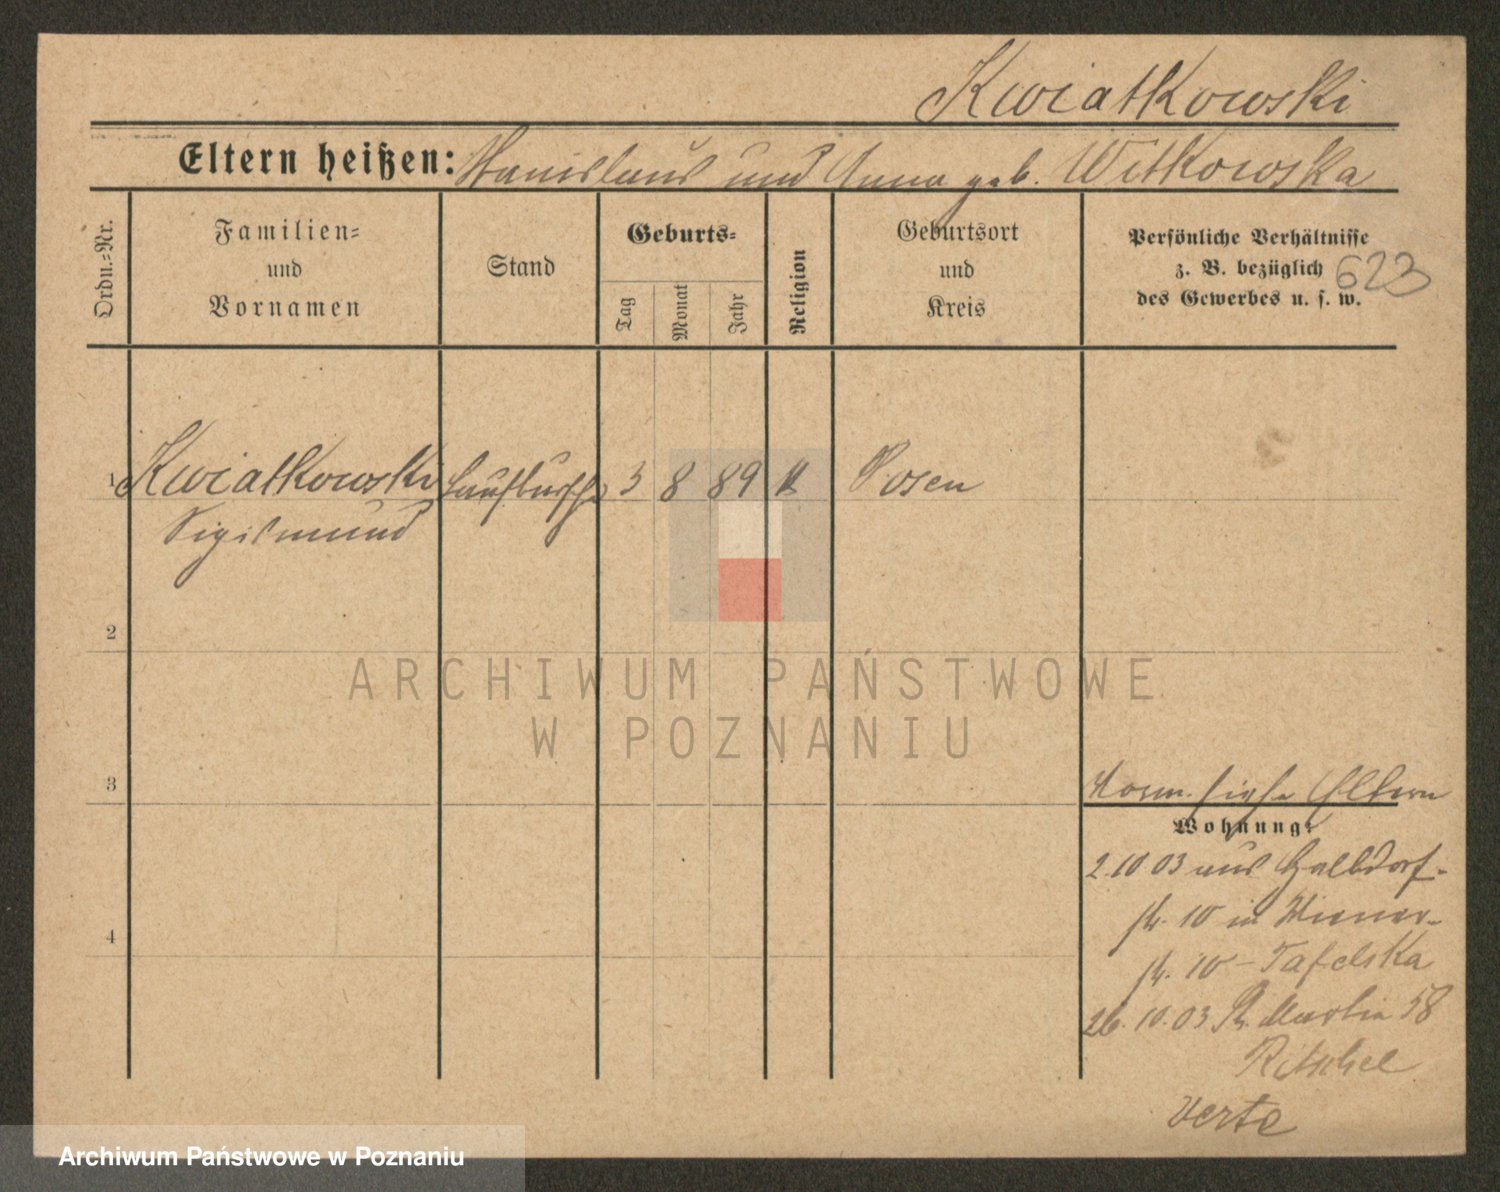 Kwiatkowski
Eltern heißen: Stanislaus und Anna geb. Witkowska
Ordn.-Nr.
Familien-
und
Vornamen
Stand
Geburts-
Tag
Monat
Jahr
Religion
Geburtsort
und
Kreis
Persönliche Verhältnisse
z. B. bezüglich
des Gewerbes u. s. w.
623
1 Kwiatkowski Laufbursche 3 8 89 k Posen
Sigismund
2
ARCHIWUM PAŃSTWOWE
W POZNANIU
3
Vorm. siehe Eltern
Wohnung:
2.10 03 aus Halbdorf-
str. 10 in Wiener-
str. 10 - Tafelska
4
26.10.03 St. Martin 58
Ritschel
Verte
Archiwum Państwowe w Poznaniu